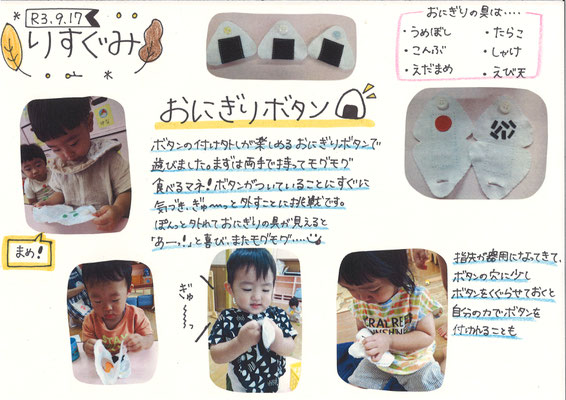 R3.9.17
りすぐみ
おにぎりの具は‥‥
・うめぼし
・たらこ
・こんぶ
・しゃけ
・えだまめ
・えび天
おにぎりボタン
ボタンの付け外しが楽しめるおにぎりボタンで
遊びました。まずは両手で持ってモグモグ
食べるマネ!ボタンがついていることにすぐに
気づき、ぎゅ〜っと外すことに挑戦です。
ぽんっと外れておにぎりの具が見えると
「あー!」と喜び、またモグモグ‥‥
まめ!
ぎゅ〜っ
指先が器用になってきて、
ボタンの穴に少し
ボタンをくぐらせておくと
自分の力でボタンを
付けれることも